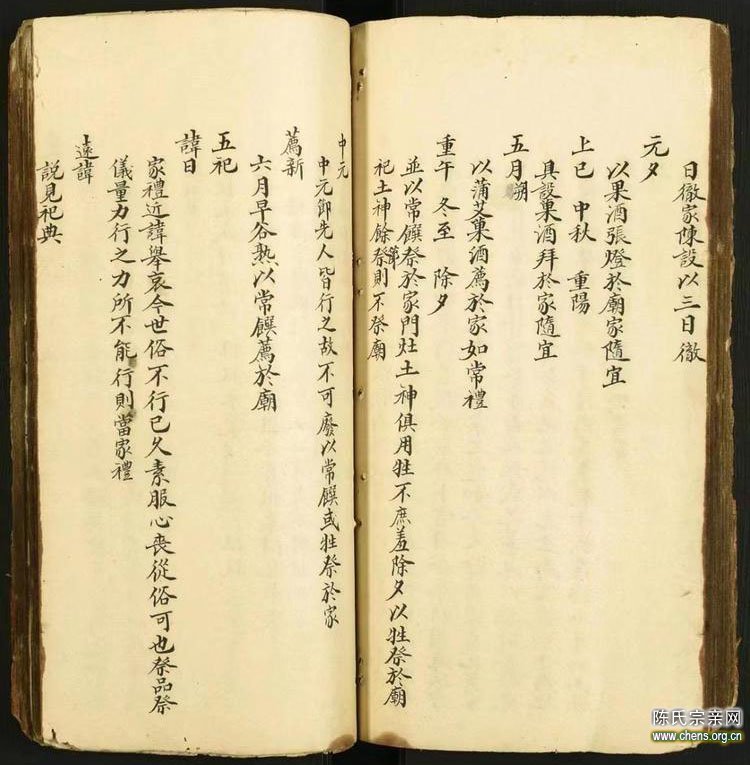 日徹家陳設以三日徹
元夕
以果酒張燈於廟家隨宜
上巳 中秋 重陽
具設菓酒拜於家隨宜
五月朔
以蒲艾菓酒薦於家如常禮
重午 冬至 除夕
並以常饌祭於家門灶土神俱用牲不庶羞除夕以牲祭於廟
祀土神餘祭則不祭廟
中元
中元御先人皆行之故不可廢以常饌或牲祭於家
薦新
六月早谷熟以常饌薦於廟
五祀
諱日
家禮近諱舉哀今世俗不行已久素服心喪從俗可也祭品祭
儀量力行之力所不能行則當家禮
遠諱
説見祀典
陈氏宗亲网
www.chens.org.cn